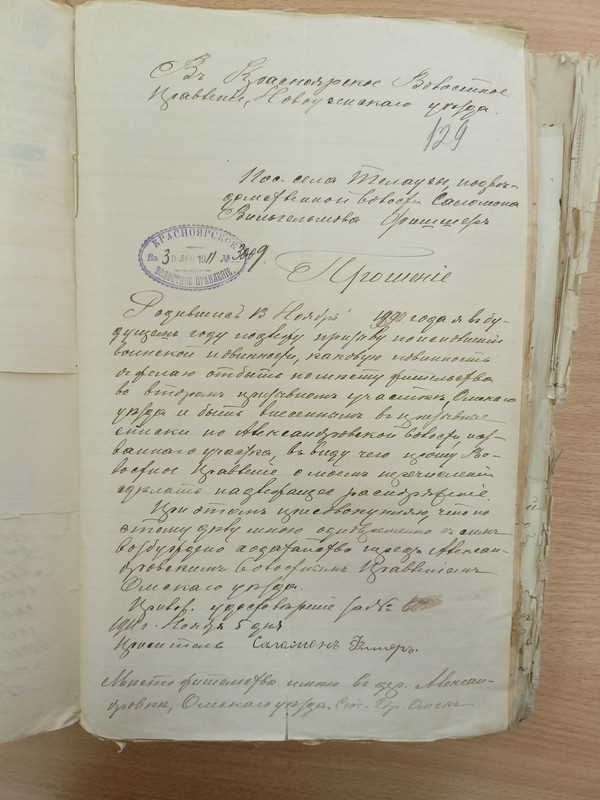 Въ Красноярское Волостное
Правленіе, Новоузенскаго уѣзда.
129
Пос. села Телаузы, подвѣ-
домственной волости Саломона
Вильгельмова Фришперъ
КРАСНОЯРСКОЕ
Въ 3 ДЕК 1911 № 3009.
ВОЛОСТНОЕ ПРАВЛЕНІЕ.
Прошеніе
Родившись 13 Ноября года я въ бу-
дущемъ году подлежу призыву по исполненію
воинской повинности, каковую повинность
я желаю отбыть по мѣсту жительства
во второмъ призывномъ участкѣ, Омскаго
уѣзда и быть внесеннымъ въ призывные
списки по Александровской волости, наз-
ваннаго участка, въ виду чего прошу Во-
лостное Правленіе о моемъ перечисленіи
сдѣлать надлежащее распоряженіе.
При этомъ присовокупляю, что по
этому дѣлу мною одновременно съ симъ
возбуждено ходатайство предъ Алексан-
дровскимъ волостнымъ Правленіемъ
Омскаго уѣзда.
удостовѣреніе за №
1911 г. Ноября 5 дня
Проситель Саломонъ
Мѣсто жительства имѣю въ дер. Алексан-
дровкѣ, Омскаго уѣзда.